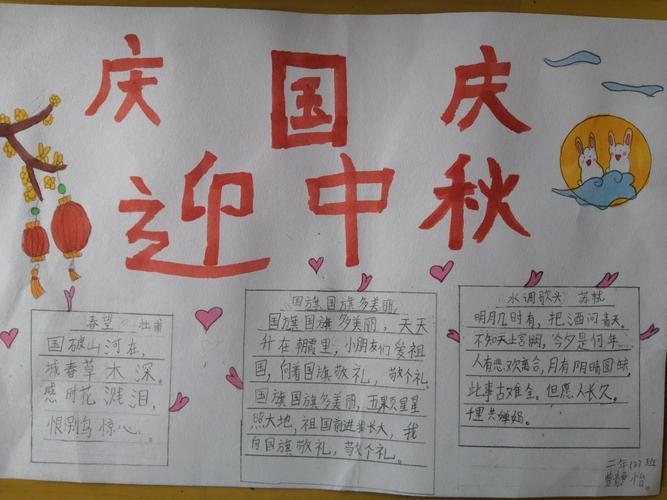 庆国庆
迎中秋
春望 杜甫
国破山河在，
城春草木深。
感时花溅泪，
恨别鸟惊心。
国旗国旗多美丽
国旗国旗多美丽，天天
升在朝霞里，小朋友们爱祖
国，向着国旗敬礼，敬个礼。
国旗国旗多美丽，五颗星星
照大地，祖国前进我长大，我
向国旗敬礼，敬个礼。
水调歌头 苏轼
明月几时有，把酒问青天。
不知天上宫阙，今夕是何年…
人有悲欢离合，月有阴晴圆缺
此事古难全。但愿人长久。
千里共婵娟。
二年(3)班
静怡